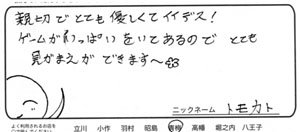 親切でとても優しくてイイデス!
ゲームがいっぱいをいてあるので とても
見がまえが できます〜
ニックネーム トモカト
よく利用されるお店を
立川 小作 羽村 昭島 青梅 高幡 堀之内 八王子